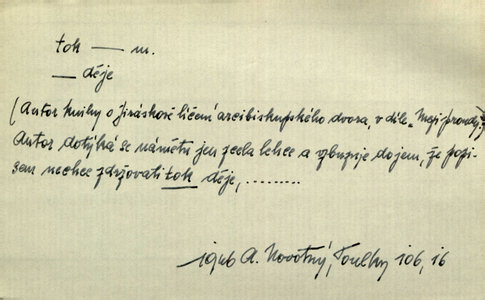 tok — m.
— děje
(Autor knihy o Jiráskově líčení arcibiskupského dvora, v díle „Mezi proudy":)
Autor dotýká se námětu jen zcela lehce a vzbuzuje dojem, že popi-
sem nechce zdržovati tok děje, .........
A. Novotný, Toulky 106, 16